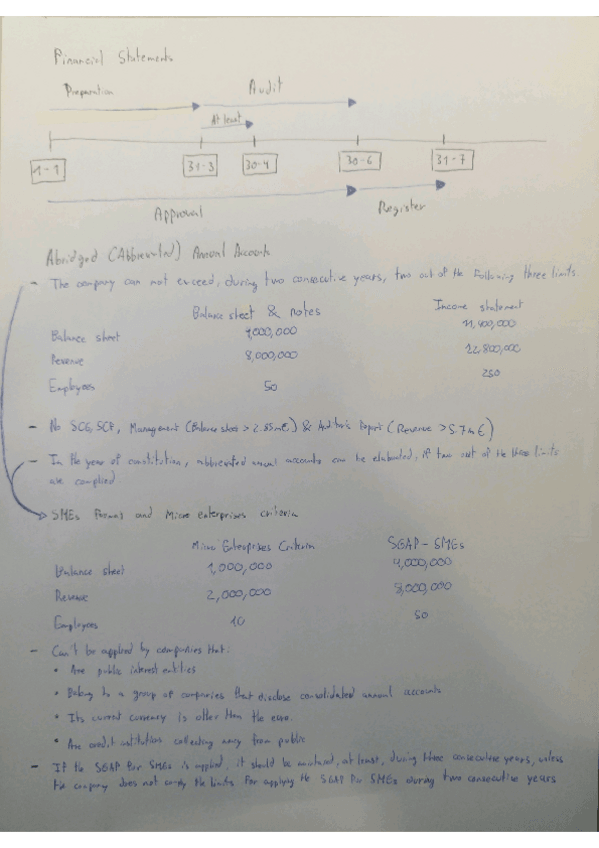 Financial Statements
Preparation
Audit
At least
1-1
31-3
30-4
30-6
31-7
Approval
Register
Abridged (Abbreviated) Annual Accounts
- The company can not exceed, during two consecutive years, two out of the following three limits.
Balance sheet & notes
Income statement
Balance sheet 4,000,000 11,400,000
Revenue 8,000,000 22,800,000
Employees 50 250
- No SCE, SCF, Management (Balance sheet > 2.85m€) & Auditor's Report (Revenue > 5.7m€)
- In the year of constitution, abbreviated annual accounts can be elaborated, if two out of the three limits
are complied
SMEs Format and Micro enterprises criteria
Micro Enterprises Criteria
SGAP-SMEs
Balance sheet 1,000,000 4,000,000
Revenue 2,000,000 8,000,000
Employees 10 50
- Can't be applied by companies that:
• Are public interest entities
• Belong to a group of companies that disclose consolidated annual accounts
• Its current currency is other than the euro.
• Are credit institutions collecting money from public
- If the SGAP for SMEs is applied, it should be maintained, at least, during three consecutive years, unless
the company does not comply the limits for applying the SGAP for SMEs during two consecutive years